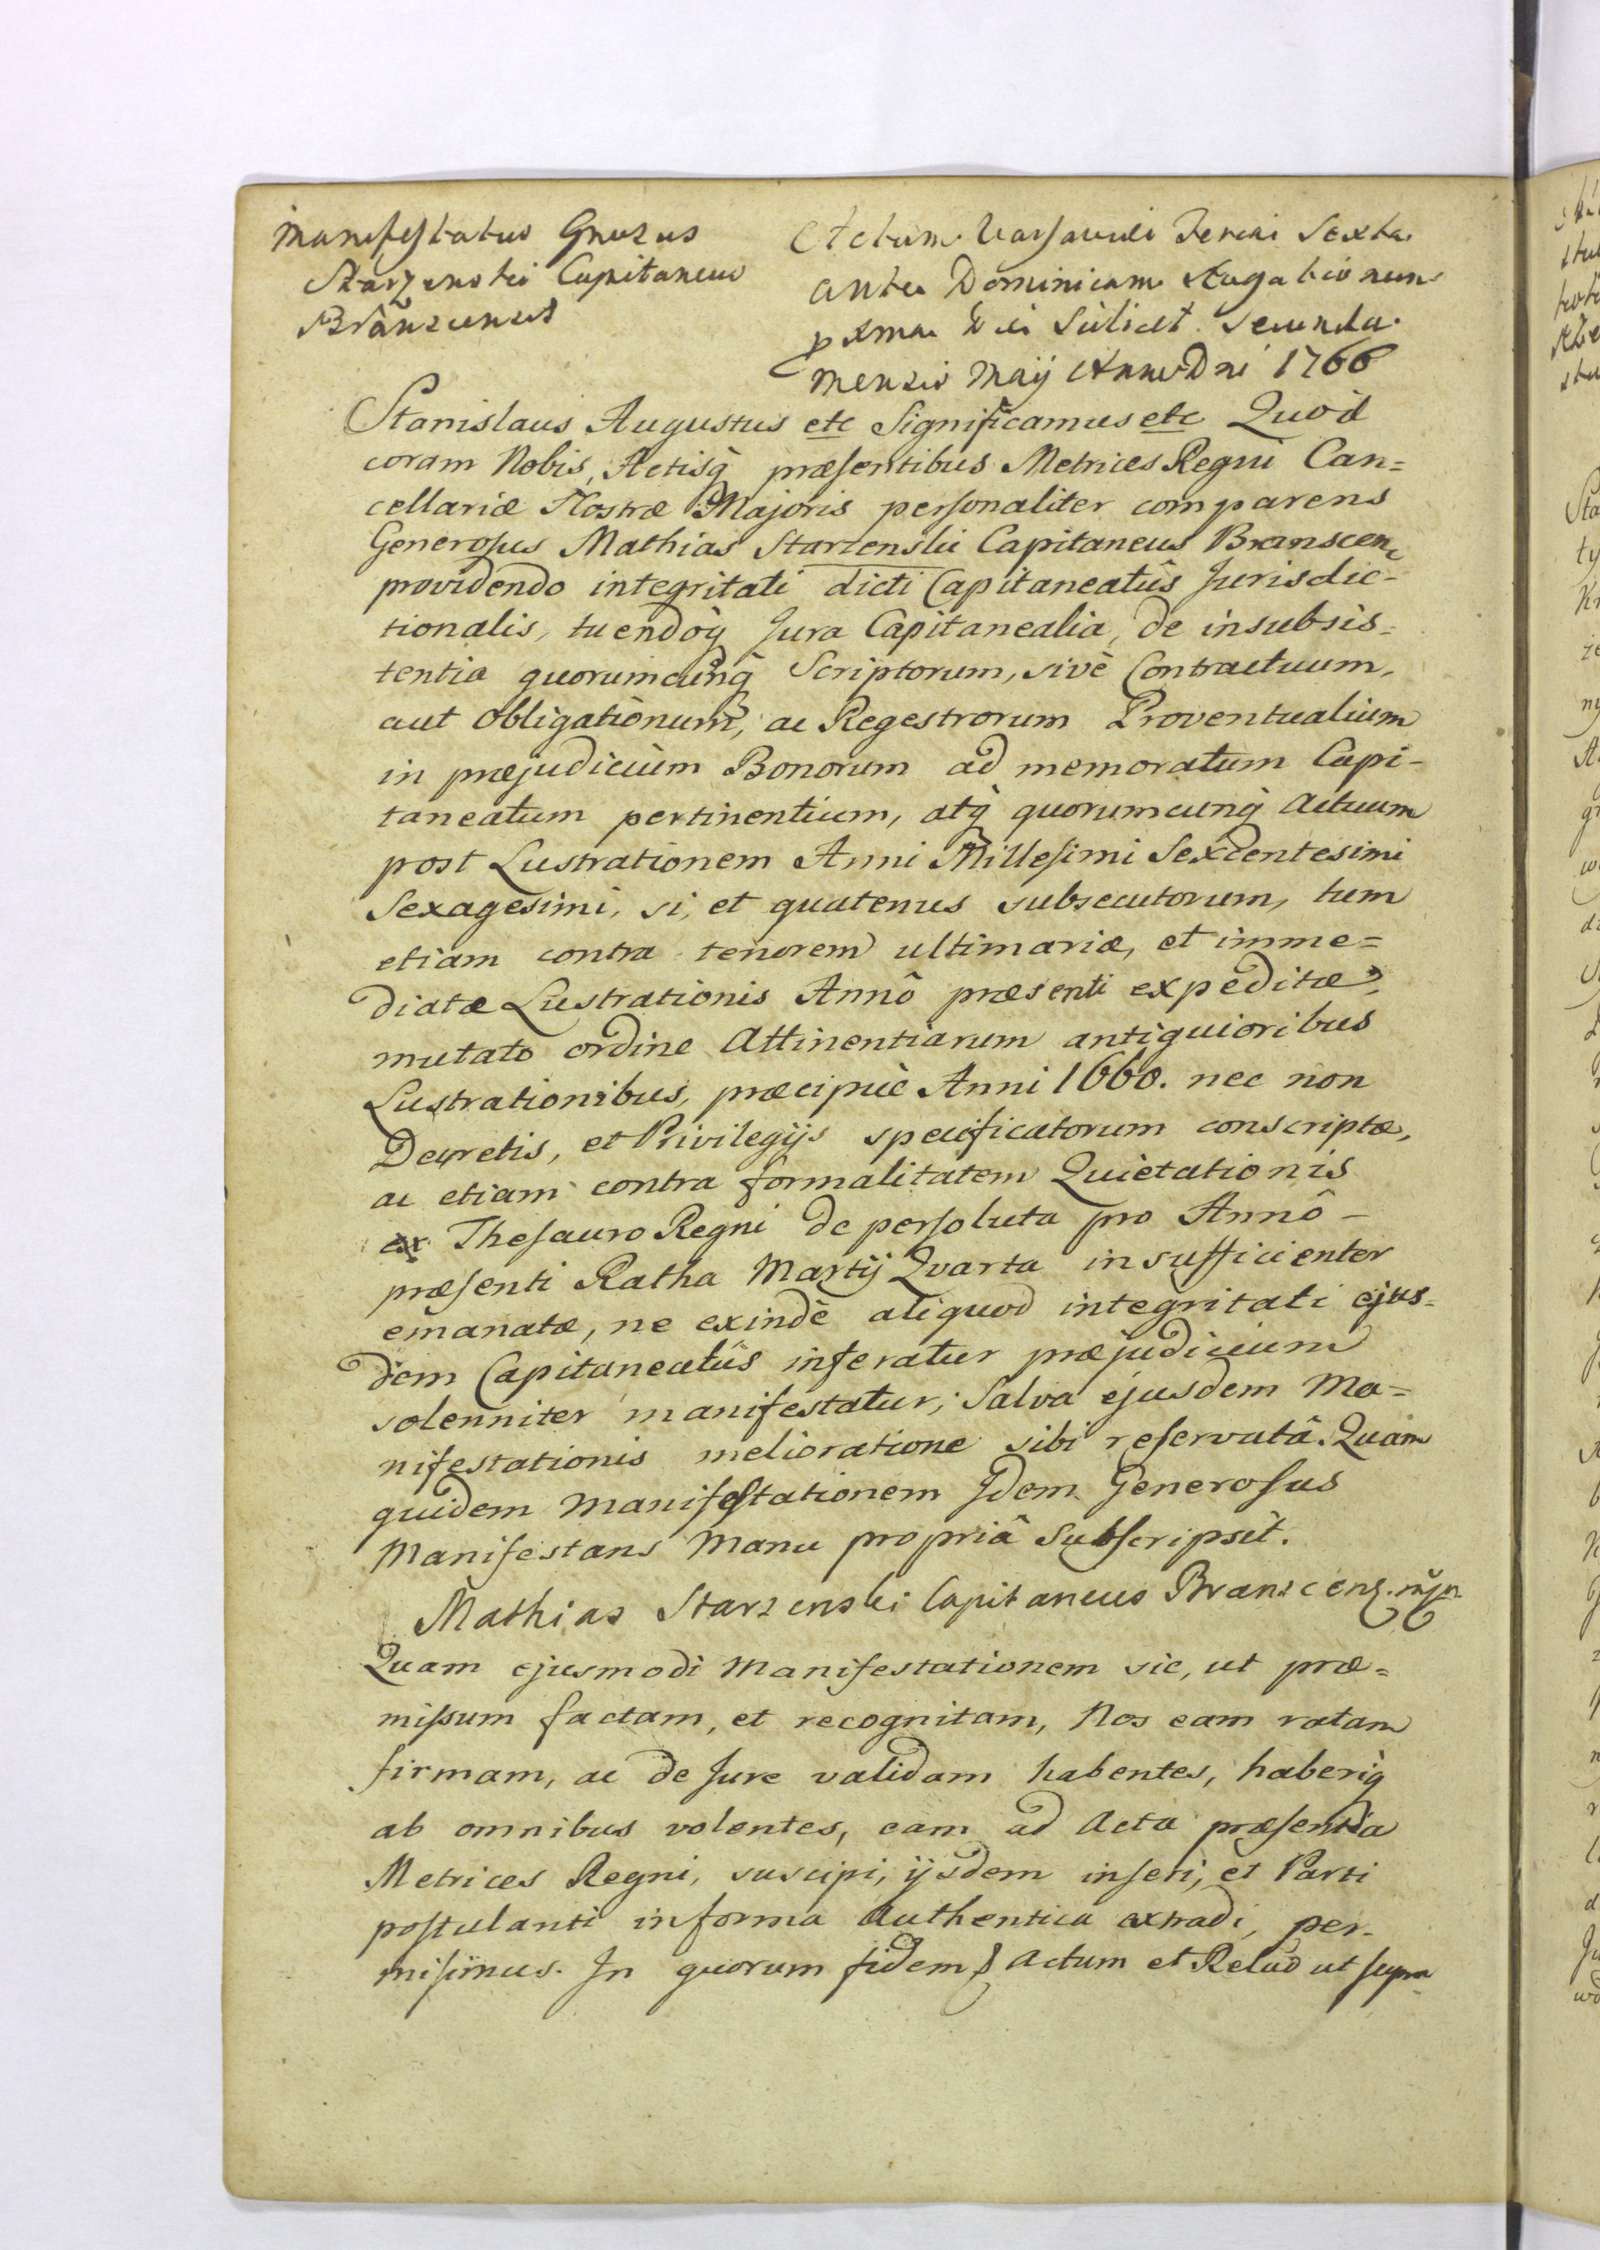 Manifestatur Gnosus
Starzenski Capitaneus
Branscensis
Actum Varsaviæ Feria Sexta
ante Dominicam Rogationum
pxma Die Scilicet Secunda
Mensis Maij Anno Dni 1766
Stanislaus Augustus etc Significamus etc Quod
coram Nobis, Actisq̀ præsentibus Metrices Regni Can=
cellariæ Nostræ Majoris personaliter comparens
Generosus Mathias Starzenski Capitaneus Branscen
providendo integritati dicti Capitaneatûs Jurisdic-
tionalis, tuendoq̀ Jura Capitanealia, de insubsis=
tentia quorumcunq̀ Scriptorum, sivè Contractuum,
aut Obligationum, ac Regestrorum Proventualium
in præjudicium Bonorum ad memoratum Capi-
taneatum pertinentium, atq̀ quorumcunq̀ Actuum
post Lustrationem Anni Millesimi Sexcentesimi
Sexagesimi, si, et quatenus subsecutorum, tum
etiam contra tenorem ultimariæ, et imme=
diatæ Lustrationis Annô præsenti expeditæ,
mutato ordine Attinentiarum antiquioribus
Lustrationibus, præcipuè Anni 1660. nec non
Decretis, et Privilegijs specificatorum conscriptæ,
ac etiam contra formalitatem Quietationis
ex Thesauro Regni de persoluta pro Annô -
præsenti Ratha Martij Quarta insufficienter
emanatæ, ne exindè aliquod integritati ejus=
dem Capitaneatûs inferatur præjudicium
solenniter manifestatur; Salva ejusdem Ma=
nifestationis melioratione sibi reservatâ. Quam
quidem Manifestationem Idem Generosus
Manifestans Manu propriâ Subscripsit.
Mathias Starzenski Capitaneus Branscens. mpp.
Quam ejusmodi Manifestationem sic, ut præ=
missum factam, et recognitam, Nos eam ratam
firmam, ac de Jure validam habentes, haberiq̀
ab omnibus volentes, eam ad Acta præsentia
Metrices Regni, suscipi, ijsdem inseri, et Parti
postulanti in forma Authentica extradi, per-
misimus. In quorum fidem Actum et Relad ut supra